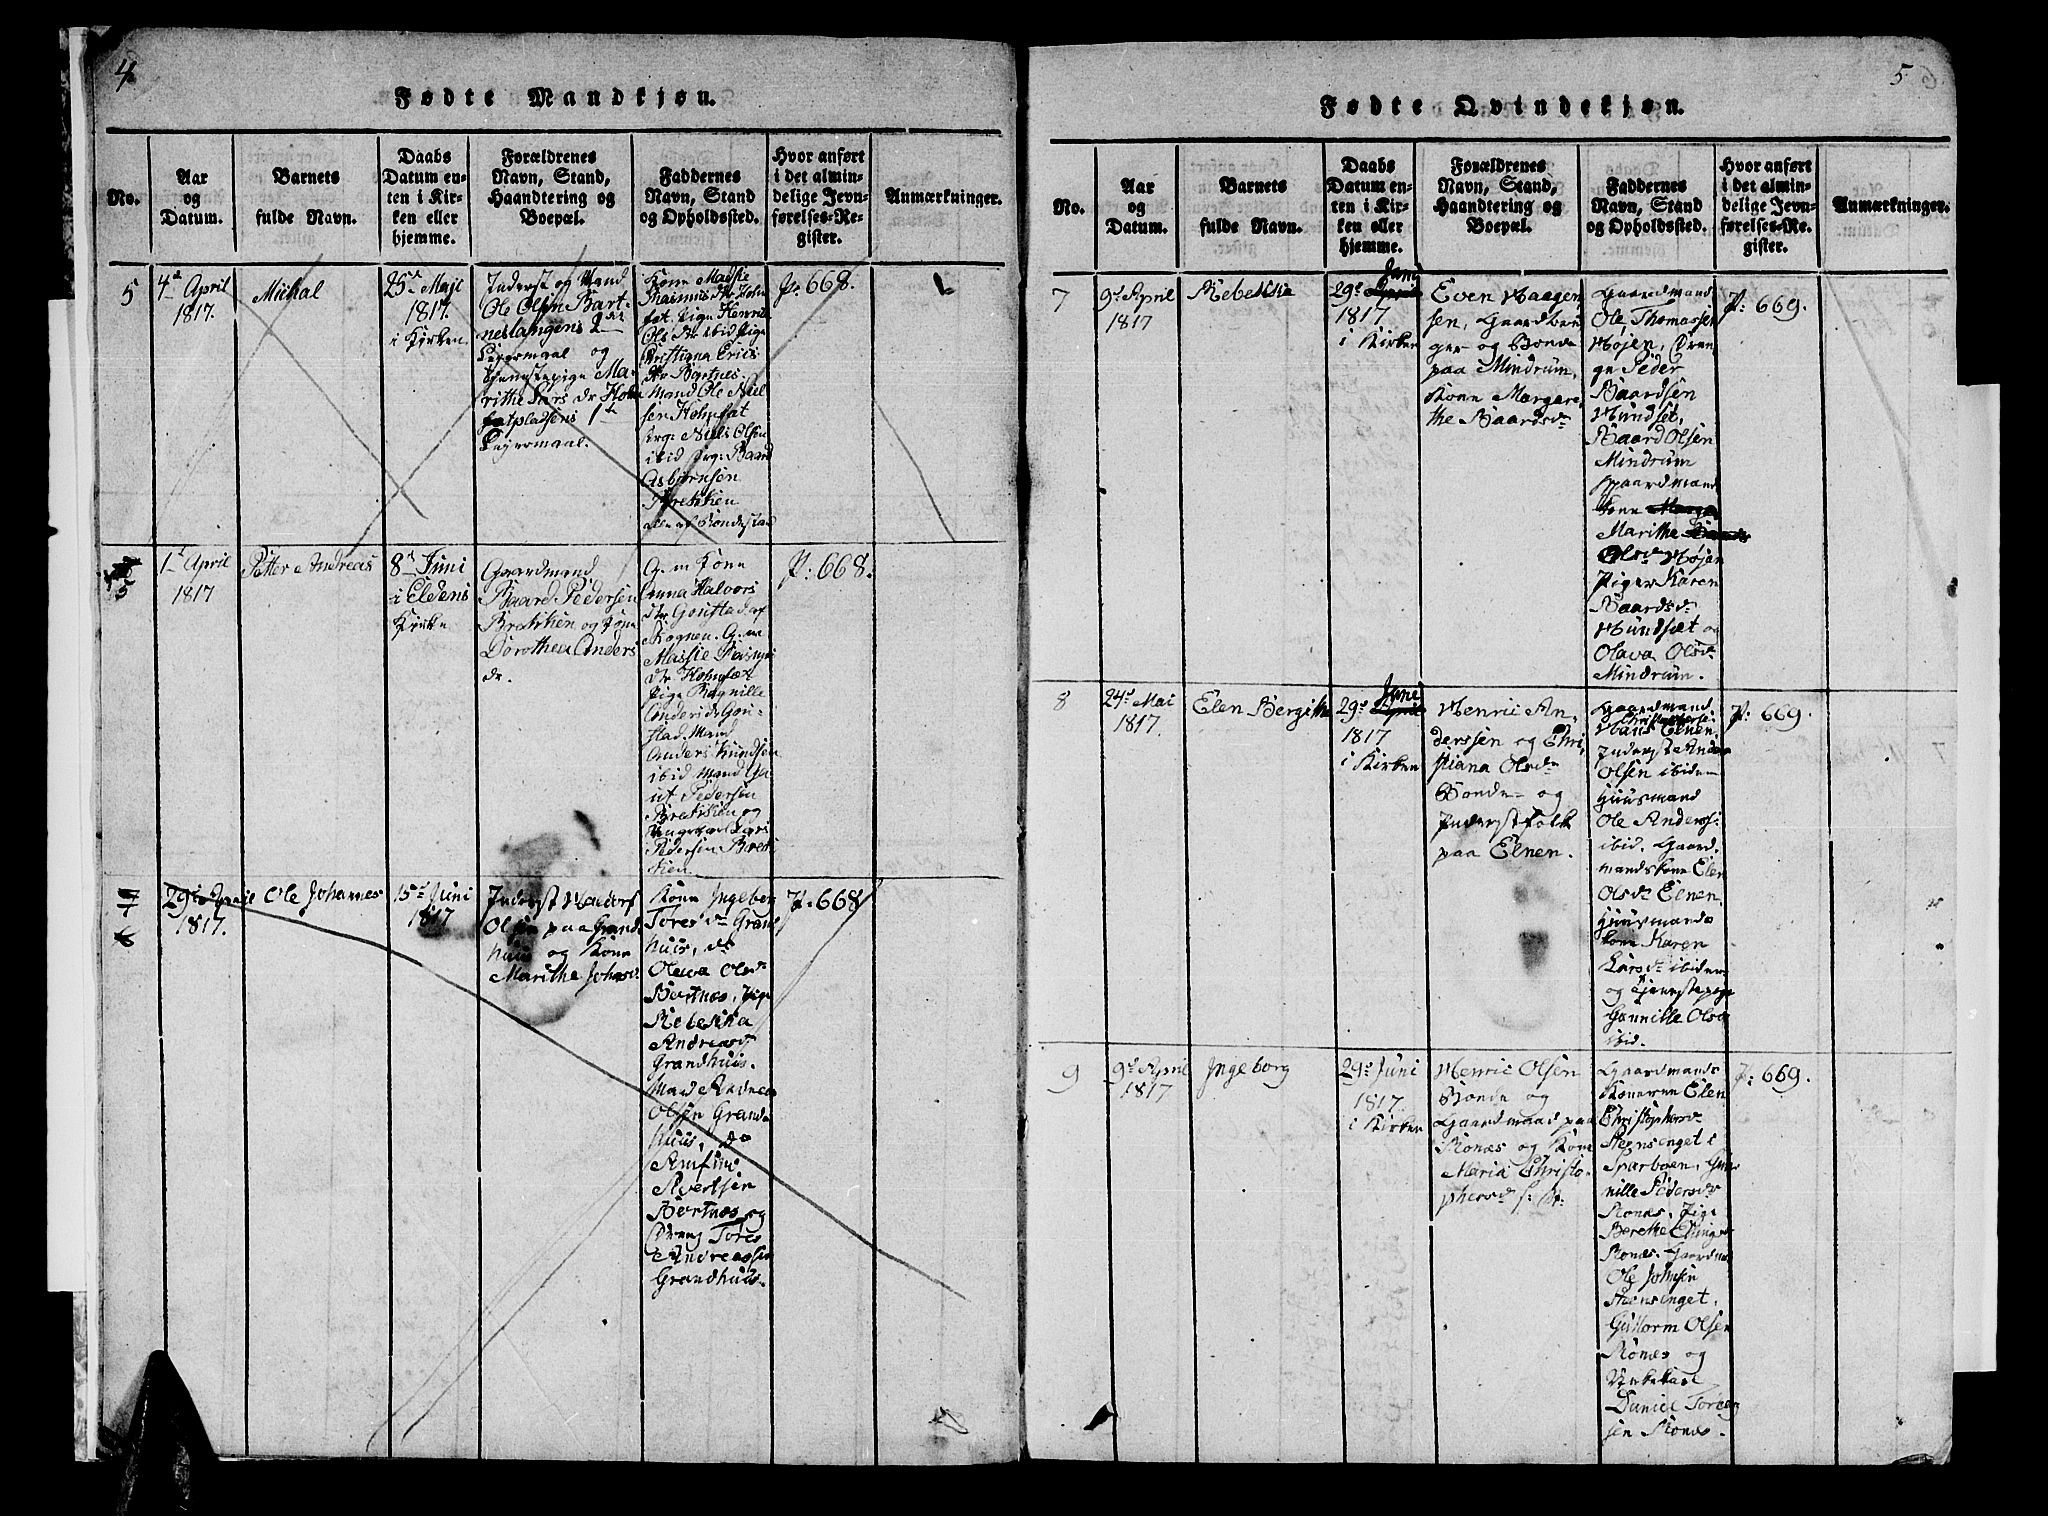 4
Fødte Mandkjøn.
No.
Aar
og
Datum.
Barnets
fulde Navn.
Daabs
Datum en-
ten i Kir-
ken eller
hjemme.
Forældrenes
Navn, Stand,
Haandtering og
Boepæl.
Faddernes
Navn, Stand
og Opholdssted.
Hvor anført
i det almin-
delige Jevn-
førelses-Re-
gister.
Anmærkninger.
5
4de April
1817.
Mickal
25de Maji
1817.
i Kirken
Inderst og Mand
Ole Olsen Bart-
neslangens 2det
Leyermaal og
Tjenestepige Ma-
rithe Lars Dr Holm
fatpladsens 1te
Leyermaal.
Kone Massie
Rasmus Dr Holm
fat. Pige Henric
Ols Dr ibid Pige
Cristiana Erics
Dr Bartnes.
Mand Ole Niel
sen Holmfat
Drg: Niels Olsen
ibid Drg: Baard
Asbjørnsen
Bretkien
alle af Bondestand
p. 668.
5
1te April
1817
Petter Andreas
8de Juni
i Eldens
Kirke
Gaardmand
Baard Pedersen
Bretkien og Kone
Dorothea Anders
dr.
G. m Kone
Anna Halvors
dr. Goustad af
Rognen. G. m
Massie Rasmus
dr. Holmfat
Pige Ragnille
Anders dr Gou-
stad. Mand
Anders Knudsen
ibid Mand Ga
ut Pedersen
Bretkien og
Ungekarl Lars
Pedersen Bret
kien.
P: 668.
7
6
29de April
1817.
Ole Johannes
15de Juni
1817
Inderst Halvor
Olsen paa Grand
huus og Kone
Marithe Johasdr
Kone Ingeborg
Toresdr Grand
huus, do
Oleva Olsdr
Bortnæs, Pige
Rebekka
Andreasdr
Grandhuus.
Mand Andreas
Olsen Grand
huus, do
Arnfin
Sivertsen
Bortnæs og
Dreng Tores
Andreassen
Grandhuus.
P: 668
5
Fødte Qvindekjøn.
No.
Aar
og
Datum.
Barnets
fulde Navn.
Daabs
Datum en-
ten i Kir-
ken eller
hjemme.
Forældrenes
Navn, Stand,
Haandtering og
Boepæl.
Faddernes
Navn, Stand
og Opholdssted.
Hvor anført
i det almin-
delige Jevn-
førelses-Re-
gister.
Anmærkninger.
7
9de April
1817
Rebekka
Juni
29de April
1817
i Kirken
Even Haagen
sen, Gaardbru
ger og Bonde
paa Mindrum,
Kone Margare,
the Baardsdr
Gaardmand
Ole Thomassen
Højen, Dren
ge Peder
Baardsen
Hundset,
Baard Olsen
Mindrum
Gaardmand
Kone
Marithe
Olsdr Højen
Piger Karen
Baardsdr
Hundsæt og
Olava Olsdr
Mindrum.
P: 669.
8
24de Mai
1817.
Elen Bergithe
Juni
29de April
1817
i Kirken
Henric An,
derssen og Chri
stiana Olsdr
Bonde- og
Inderstfolk
paa Elnen.
Gaardmand
Christophersen
Hans Elnen.
Inderst Anders
Olsen ibidem
Huusmand
Ole Anders:
ibid. Gaard
mandskone Elen
Olsdr Elnen.
Huusmands
kone Karen
Larsdr ibidem
og Tjenestepige
Gunnille Olsdr
ibid.
P: 669.
9
9de April
1817
Ingeborg
29de Juni
1817
i Kirken
Henric Olsen
Bonde og
Gaardmand paa
Ronæs og Kone
Maria Christo-
phersdr
Gaardmands
Konerne Elen
Christophersdr
Stensenget i
Sparboen, Gun
nille Pedersdr
Ronæs, Pige
Berethe Ellings
Ronæs. Gaardm:
Ole Johnsen
Steensenget,
Guttorm Olsen
Ronæs og
Unkekarl
Daniel Torber
sen Ronæs.
P: 669.